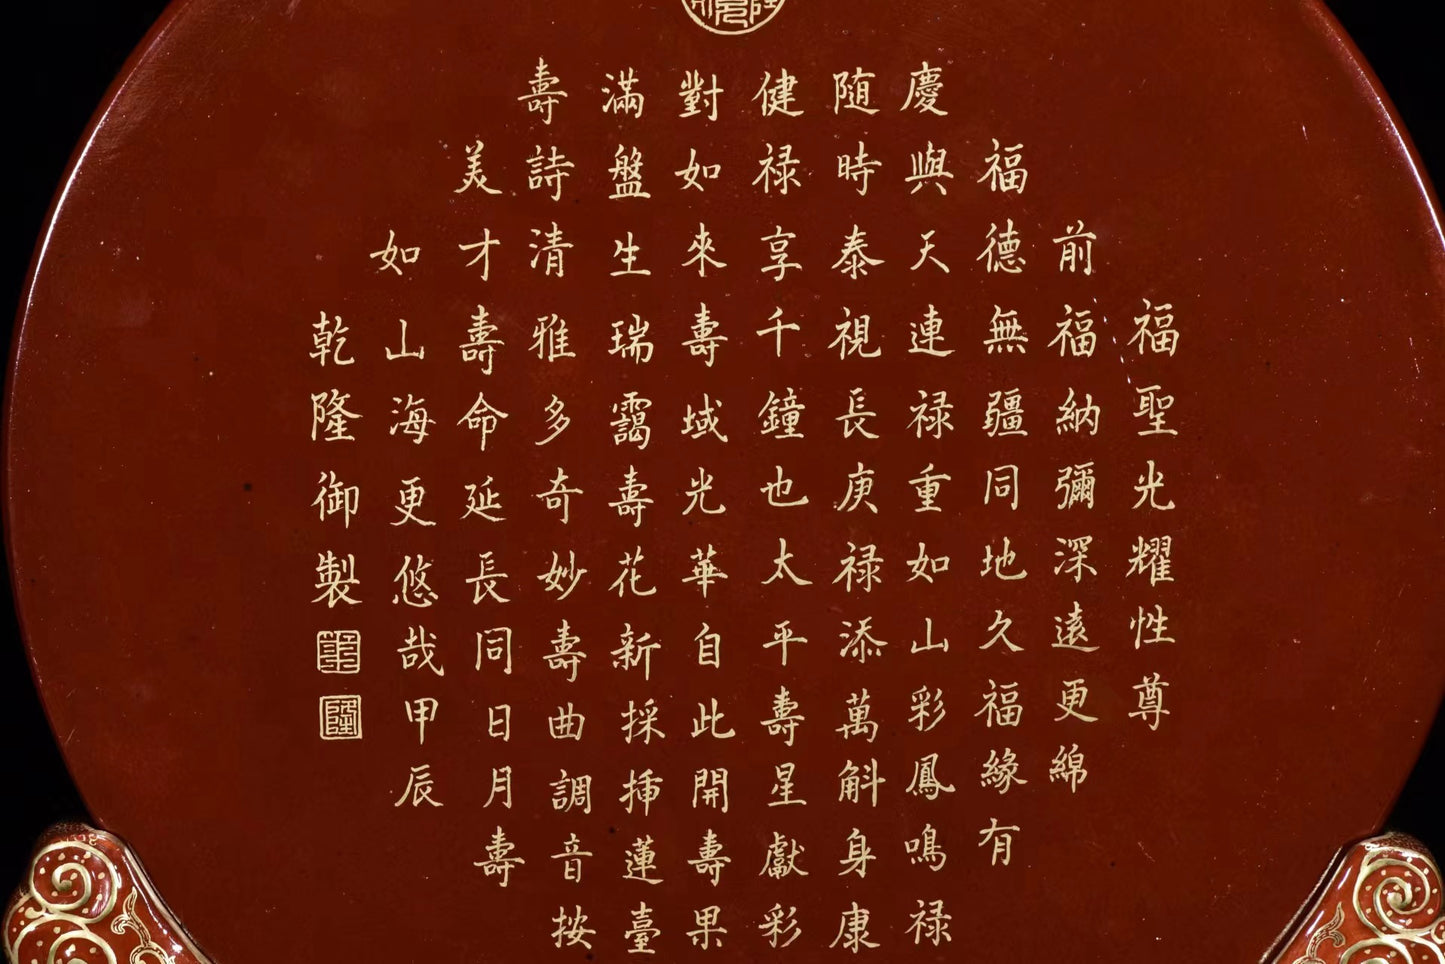 福聖光耀性尊
前福納彌深遠更綿
福德無疆同地久福緣有
慶與天連禄重如山彩鳳鳴禄
随時泰視長庚禄添萬斛身康
健禄享千鐘也太平壽星獻彩
對如來壽域光華自此開壽果
滿盤生瑞靄壽花新採挿蓮臺
壽詩清雅多奇妙壽曲調音按
美才壽命延長同日月壽
如山海更悠哉甲辰
乾隆御製